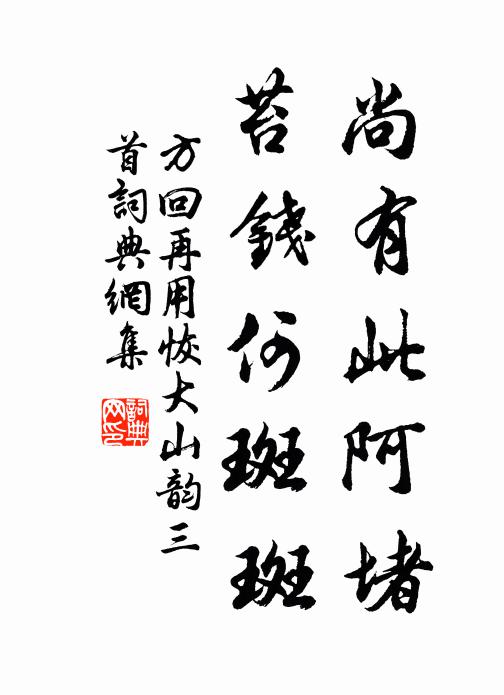 尚有此阿堵
苔錢何斑斑
方回再用恢大山韵三
首詞典網集
詞典網印